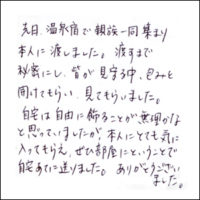 先日、温泉宿で親族一同集まり
本人に渡しました。渡すまで
秘密にし、皆が見守る中、包みを
開けてもらい、見てもらいました。
自宅は自由に飾ることが無理かな
と思っていましたが、本人にとても気に
入ってもらえ、ぜひ部屋にということで
自宅あてに送りました。ありがとうござい
ました。